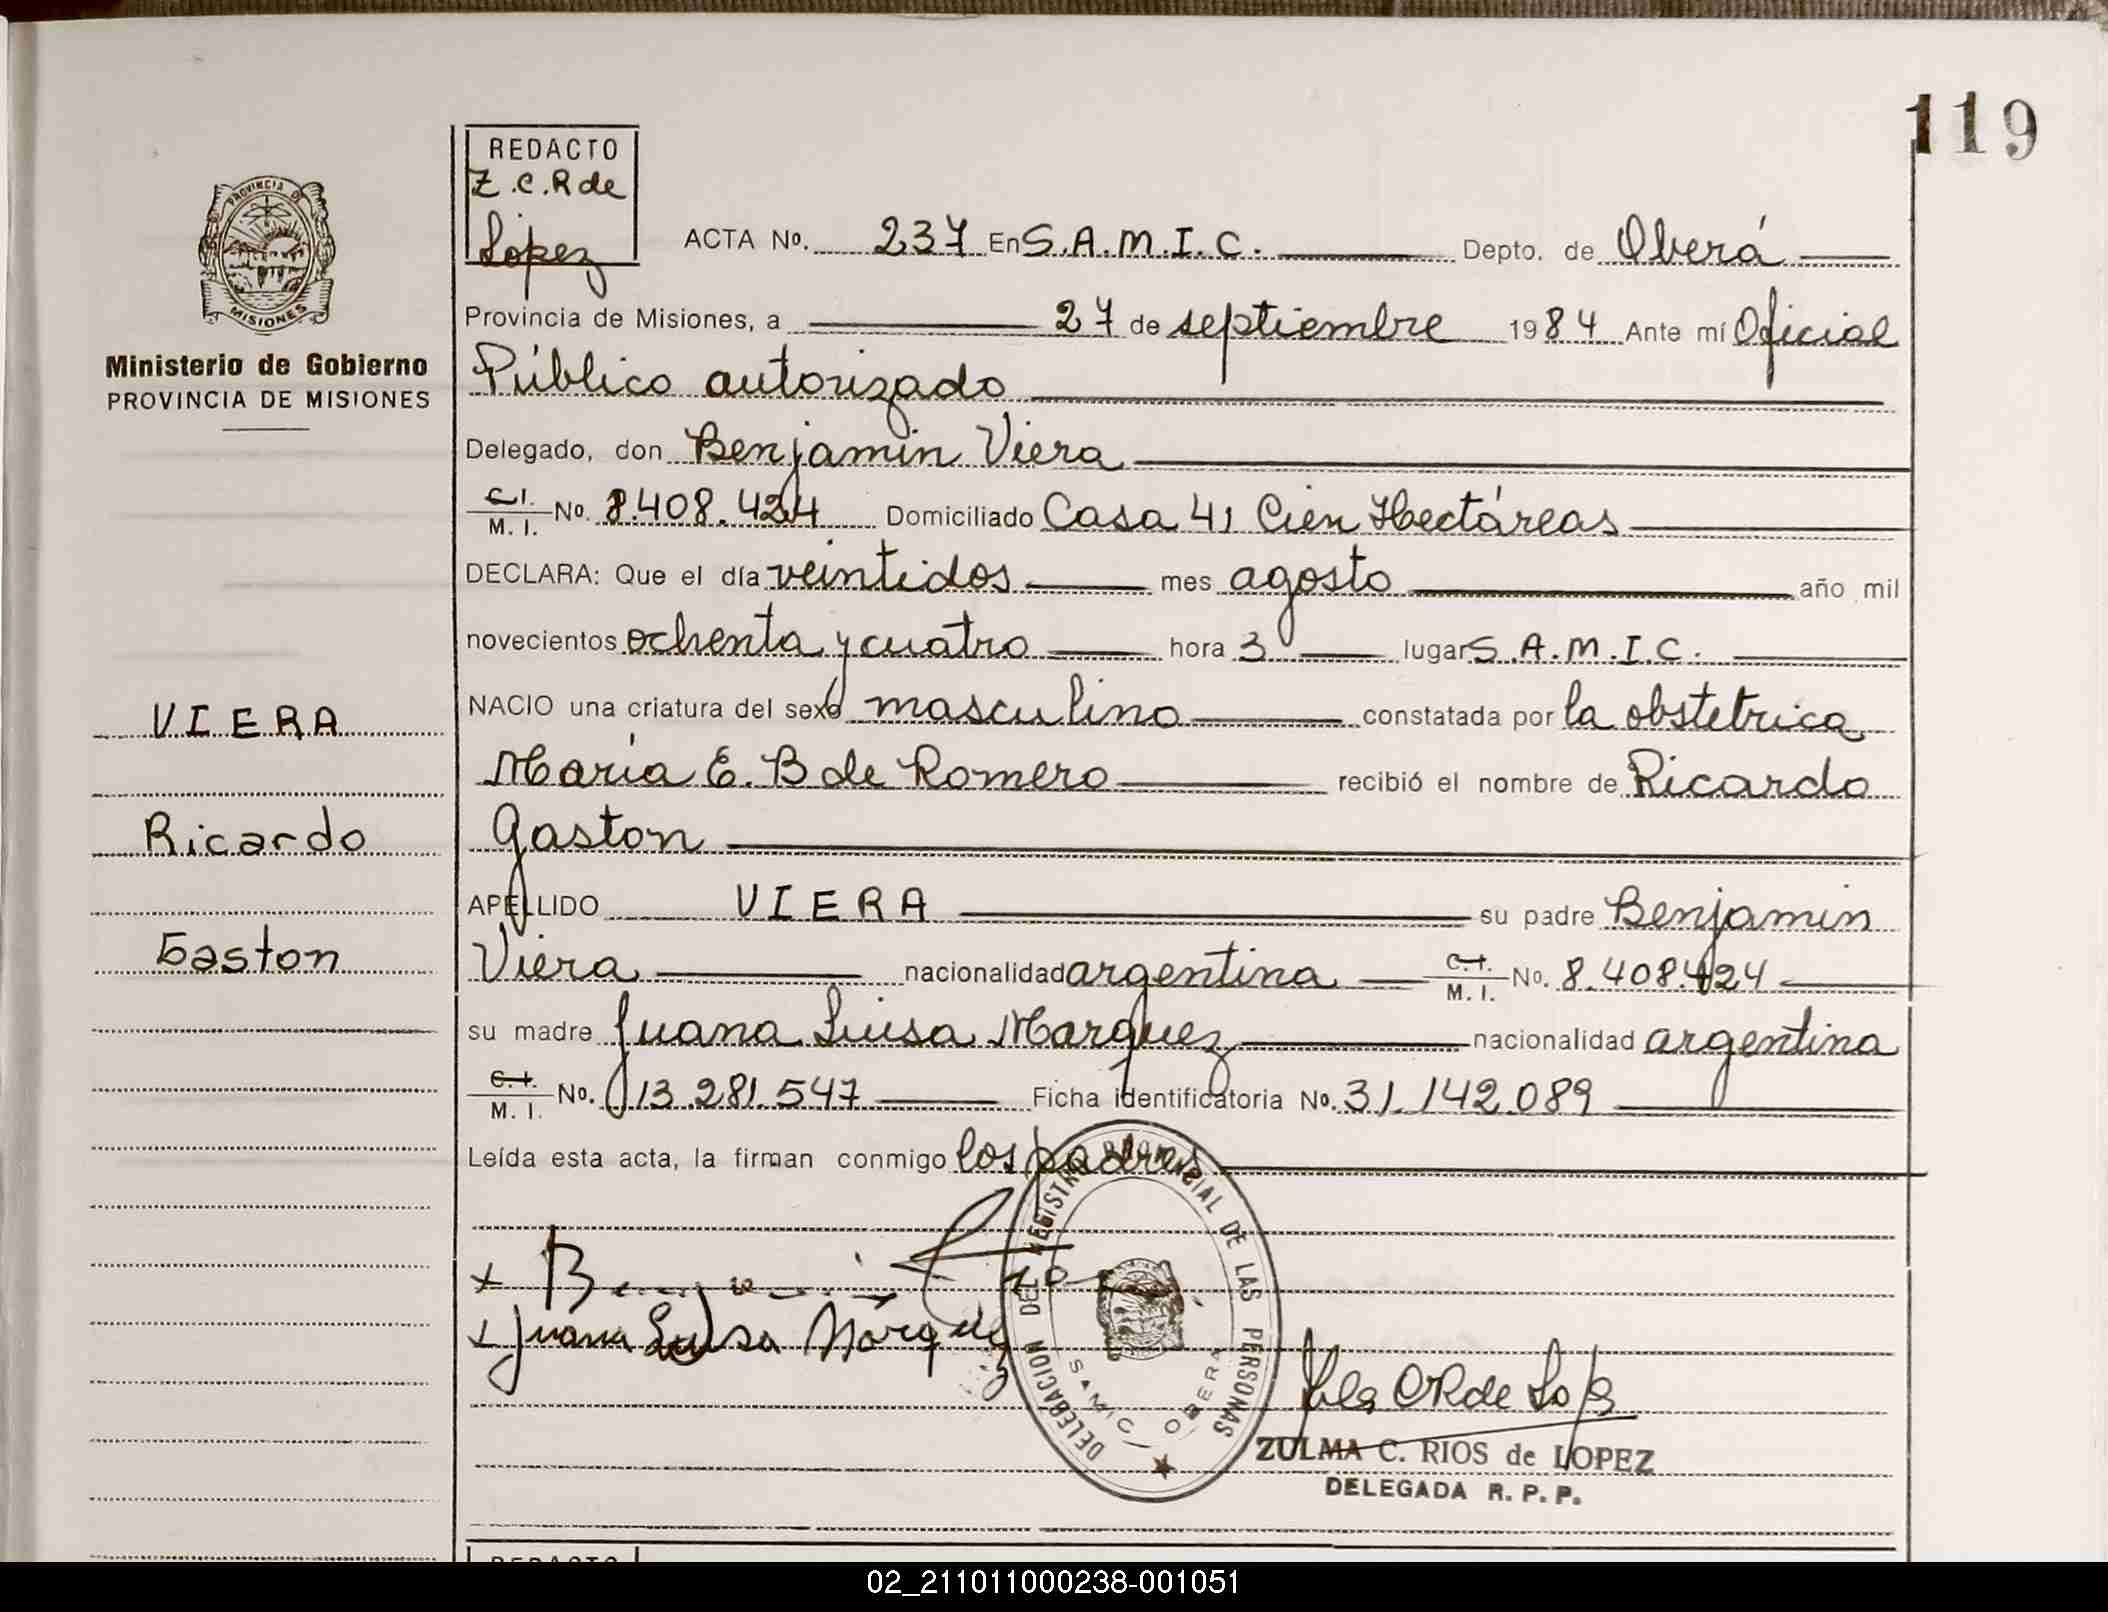 119
REDACTO
Z.C.R de
Lopez
PROVINCIA DE
MISIONES
Ministerio de Gobierno
PROVINCIA DE MISIONES
ACTA Nº. 237 En S.A.M.I.C. Depto. de Oberá
Provincia de Misiones, a 27 de septiembre 1984 Ante mí Oficial
Público autorizado
Delegado, don Benjamin Viera
C.I. M. I. Nº. 8.408.424 Domiciliado Casa 41 Cien Hectáreas
DECLARA: Que el día veintidos mes agosto año mil
novecientos ochenta y cuatro hora 3 lugar S.A.M.I.C.
NACIO una criatura del sexo masculino constatada por la obstetrica
María E. B de Romero recibió el nombre de Ricardo
Gaston
APELLIDO VIERA su padre Benjamin
Viera nacionalidad argentina C.I. M. I. Nº. 8.408.424
su madre Juana Luisa Marquez nacionalidad argentina
C.I. M. I. Nº. 13.281.547 Ficha identificatoria Nº. 31.142.089
Leída esta acta, la firman conmigo los padres
VIERA
Ricardo
Gaston
x
x Juana Luisa Marquez
DELEGACION DEL REGISTRO PROVINCIAL DE LAS PERSONAS
SAMIC OBERA
ZULMA C. RIOS de LOPEZ
DELEGADA R. P. P.
REDACTO
02_211011000238-001051